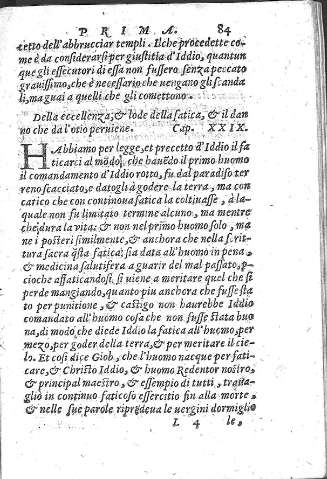 PRIMA. 84
cetto dell'abbrucciar templi. Ilche procedette co-
me è da considerarsi per giustitia d'Iddio, quantun
que gli essecutori di essa non fussero senza peccato
grauissimo, che è necessario che uengano gli scanda
li, ma guai a quelli che gli comettono.
Della eccellenza, & lode della fatica, & il dan
no che da l'otio peruiene. Cap. XXIX.
HAbbiamo per legge, et precetto d'Iddio il fa
ticarci al mōdo, che hauēdo il primo huomo
il comandamento d'Iddio rotto, fu dal paradiso ter
reno scacciato, e datogli à godere la terra, ma con
carico che con continoua fatica la coltiuasse, à la-
quale non fu limitato termine alcuno, ma mentre
che dura la vita: & non nel primo huomo solo, ma
ne i posteri similmente, & anchora che nella scrit-
tura sacra q̄sta fatica sia data all'huomo in pena,
& medicina salutifera a guarir del mal passato, p-
cioche affaticandosi, si uiene a meritare quel che si
perde mangiando, quanto piu anchora che fusse sta
to per punitione, & castigo non haurebbe Iddio
comandato all'huomo cosa che non fusse stata buo
na, di modo che diede Iddio la fatica all'huomo, per
mezo, per goder della terra, & per meritare il cie-
lo. Et così dice Giob, che l'huomo nacque per fati-
care, & Christo Iddio, & huomo Redentor nostro,
& principal maestro, & essempio di tutti, traua-
gliò in continuo faticoso essercitio fin alla morte,
& nelle sue parole riprēdeua le uergini dormiglio
L 4 se,